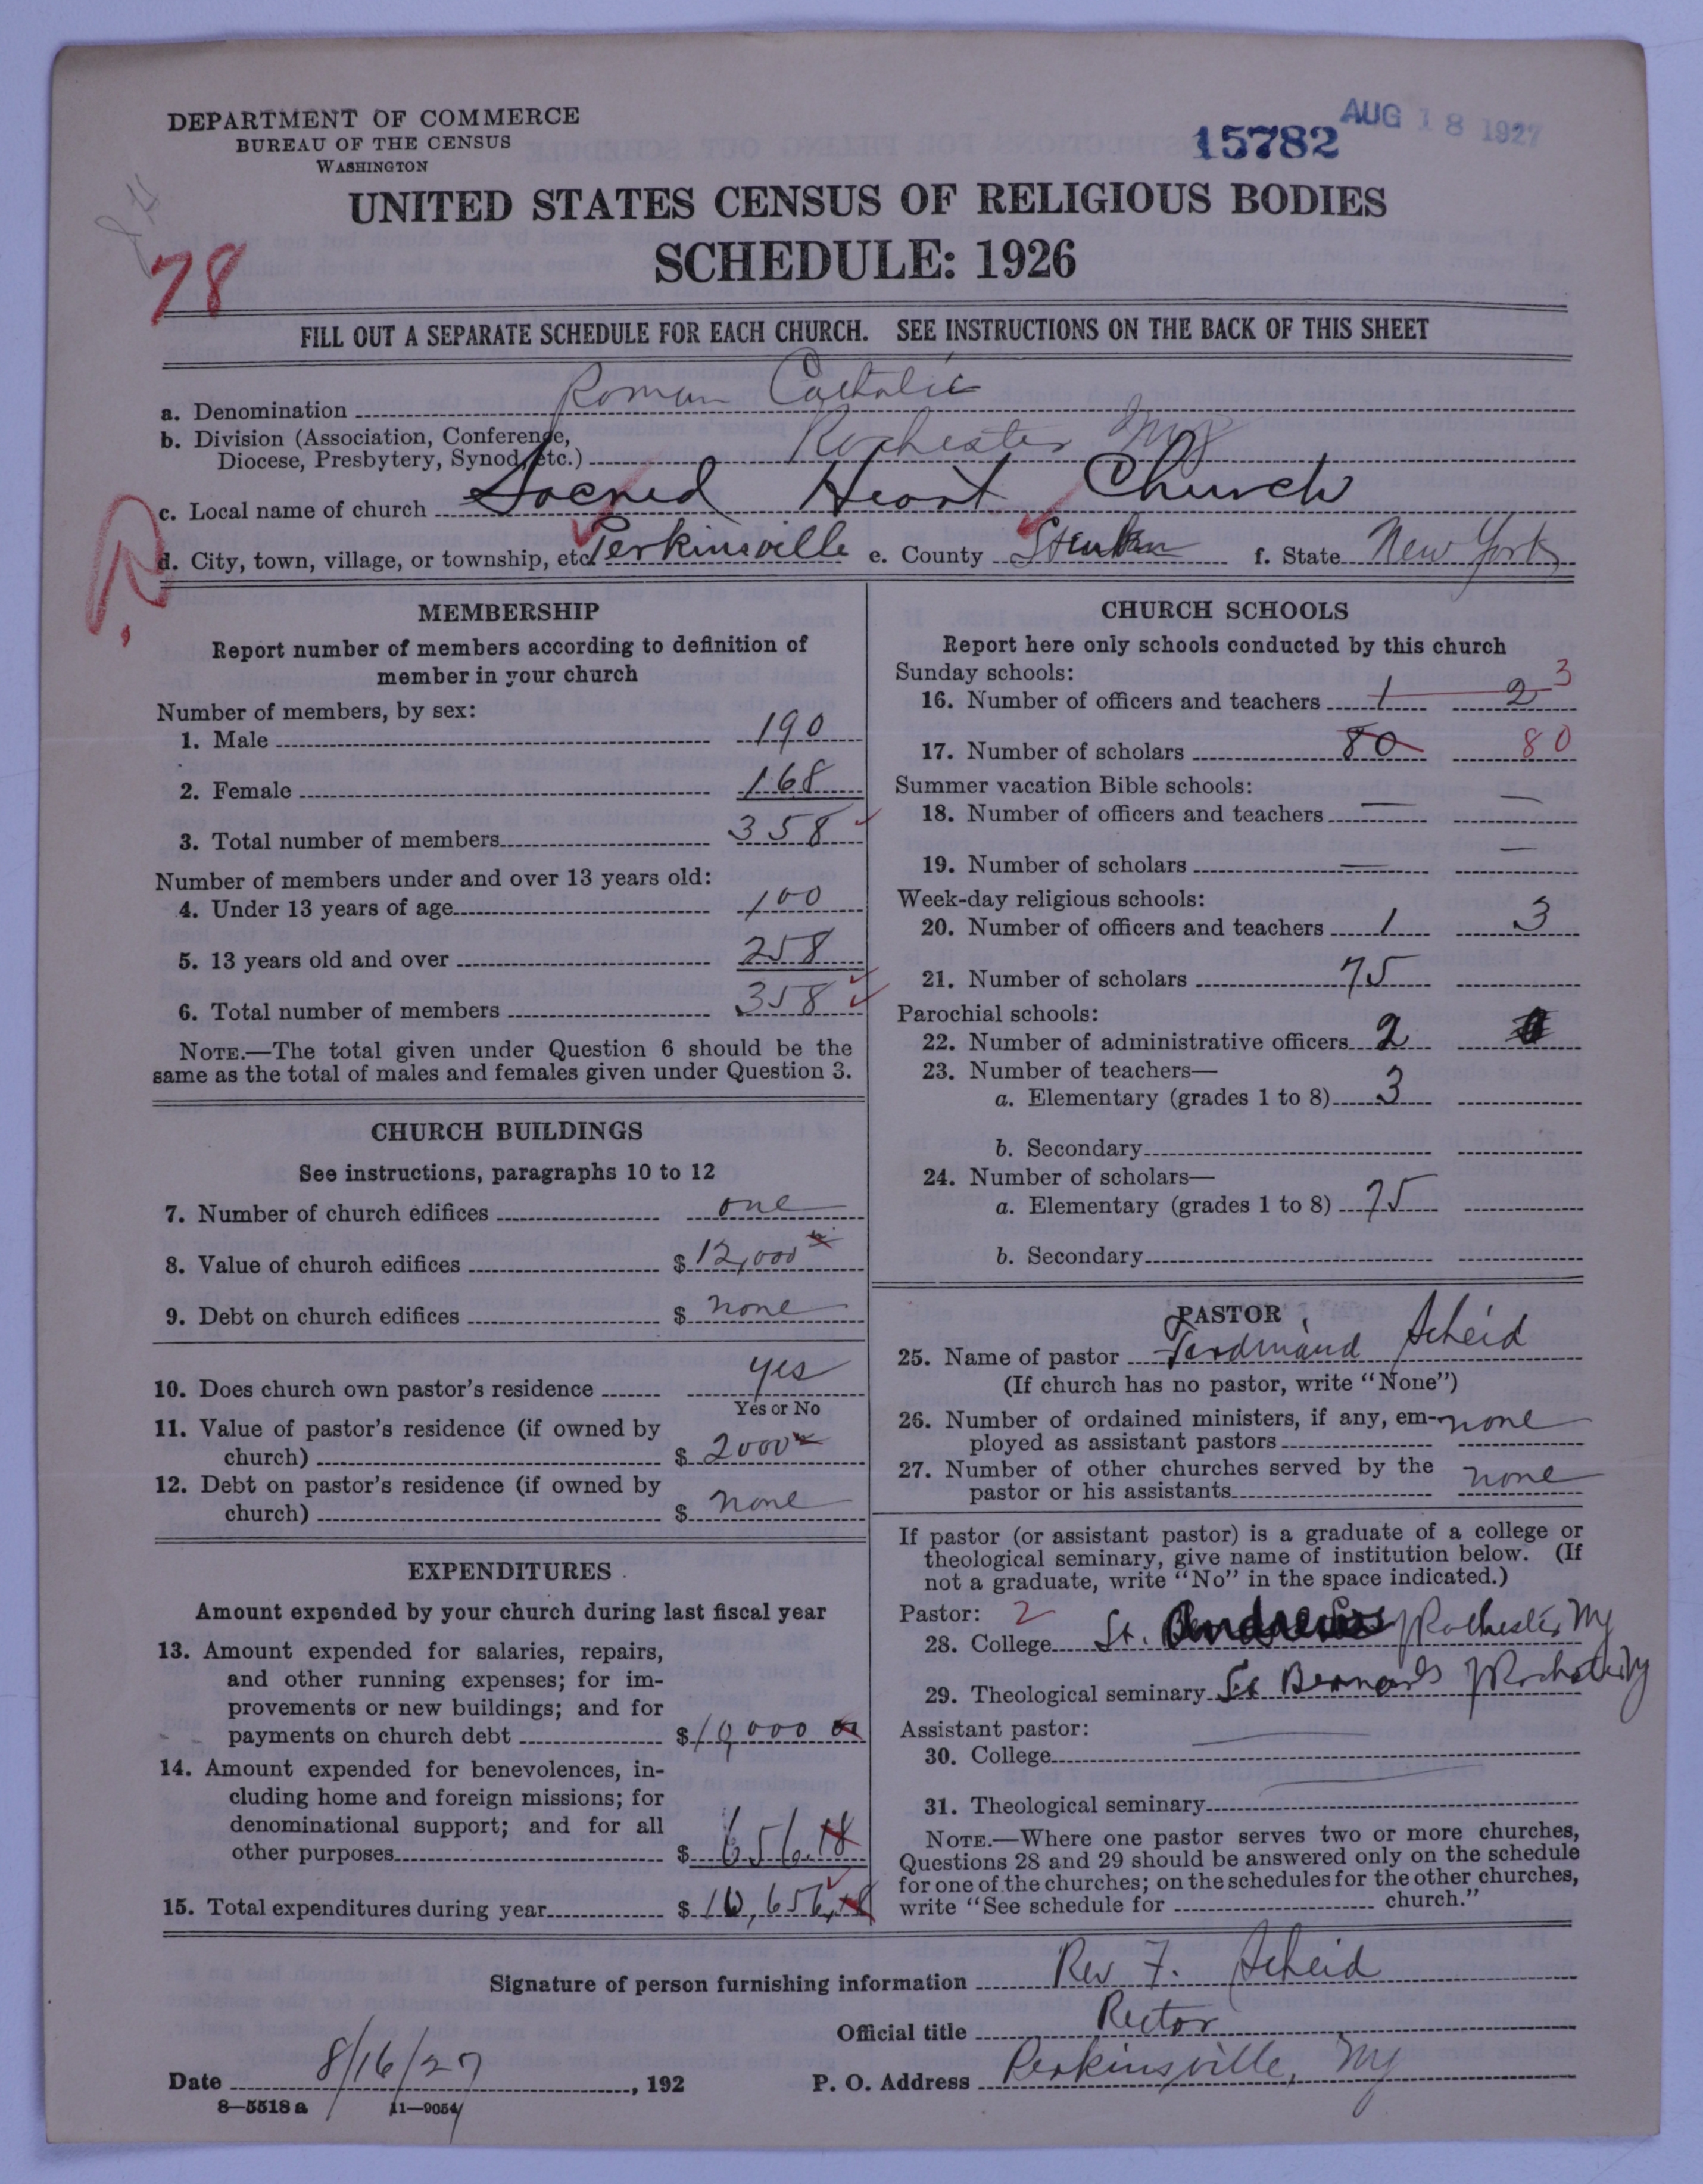 DEPARTMENT OF COMMERCE
BUREAU OF THE CENSUS
WASHINGTON
15782 AUG 18 1927
UNITED STATES CENSUS OF RELIGIOUS BODIES
SCHEDULE: 1926
78
FILL OUT A SEPARATE SCHEDULE FOR EACH CHURCH. SEE INSTRUCTIONS ON THE BACK OF THIS SHEET
a. Denomination Roman Catholic
b. Division (Association, Conference,
Diocese, Presbytery, Synod, etc.) Rochester NY
c. Local name of church Sacred Heart Church
d. City, town, village, or township, etc. Perkinsville e. County Steuben f. State New York
MEMBERSHIP
Report number of members according to definition of
member in your church
Number of members, by sex:
1. Male 190
2. Female 168
3. Total number of members 358
Number of members under and over 13 years old:
4. Under 13 years of age 100
5. 13 years old and over 258
6. Total number of members 358
NOTE.—The total given under Question 6 should be the
same as the total of males and females given under Question 3.
CHURCH BUILDINGS
See instructions, paragraphs 10 to 12
7. Number of church edifices one
8. Value of church edifices $ 12,000
9. Debt on church edifices $ none
10. Does church own pastor's residence yes
Yes or No
11. Value of pastor's residence (if owned by
church) $ 2000
12. Debt on pastor's residence (if owned by
church) $ none
EXPENDITURES
Amount expended by your church during last fiscal year
13. Amount expended for salaries, repairs,
and other running expenses; for im-
provements or new buildings; and for
payments on church debt $ 10,000
14. Amount expended for benevolences, in-
cluding home and foreign missions; for
denominational support; and for all
other purposes $ 656.18
15. Total expenditures during year $ 10,656.18
CHURCH SCHOOLS
Report here only schools conducted by this church
Sunday schools:
16. Number of officers and teachers 1 2 3
17. Number of scholars 80 80
Summer vacation Bible schools:
18. Number of officers and teachers — —
19. Number of scholars — —
Week-day religious schools:
20. Number of officers and teachers 1 3
21. Number of scholars 75
Parochial schools:
22. Number of administrative officers 2
23. Number of teachers—
a. Elementary (grades 1 to 8) 3
b. Secondary
24. Number of scholars—
a. Elementary (grades 1 to 8) 75
b. Secondary
PASTOR
25. Name of pastor Ferdinand Scheid
(If church has no pastor, write "None")
26. Number of ordained ministers, if any, em-
ployed as assistant pastors none
27. Number of other churches served by the
pastor or his assistants none
If pastor (or assistant pastor) is a graduate of a college or
theological seminary, give name of institution below. (If
not a graduate, write "No" in the space indicated.)
Pastor: 2
28. College St. Andrews Rochester NY
29. Theological seminary St Bernards Rochester NY
Assistant pastor:
30. College
31. Theological seminary
NOTE.—Where one pastor serves two or more churches,
Questions 28 and 29 should be answered only on the schedule
for one of the churches; on the schedules for the other churches,
write "See schedule for church."
Signature of person furnishing information Rev F. Scheid
Official title Rector
Date 8/16/27, 192 P. O. Address Perkinsville, NY
8—5518 a 11—9054